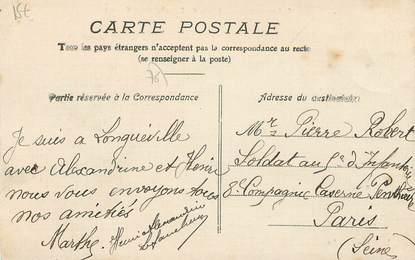 15€
CARTE POSTALE
Tous les pays étrangers n'acceptent pas la correspondance au recto
(se renseigner à la poste)
78
Partie réservée à la Correspondance
Adresse du destinataire
Je suis a Longueville
avec Alexandrine et Henri
nous vous envoyons tous
nos amitiés
Marthe Henri Alexandrine
Mr Pierre Robert
Soldat au 5e d'Infanterie
8e Compagnie Caserne Penthièvre
Paris
(Seine)